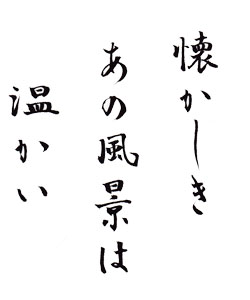 懐かしき
あの風景は
温かい